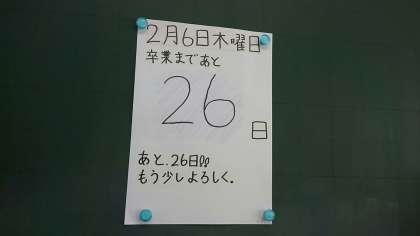 2月6日木曜日
卒業まであと
26
日
あと.26日!!
もう少しよろしく.